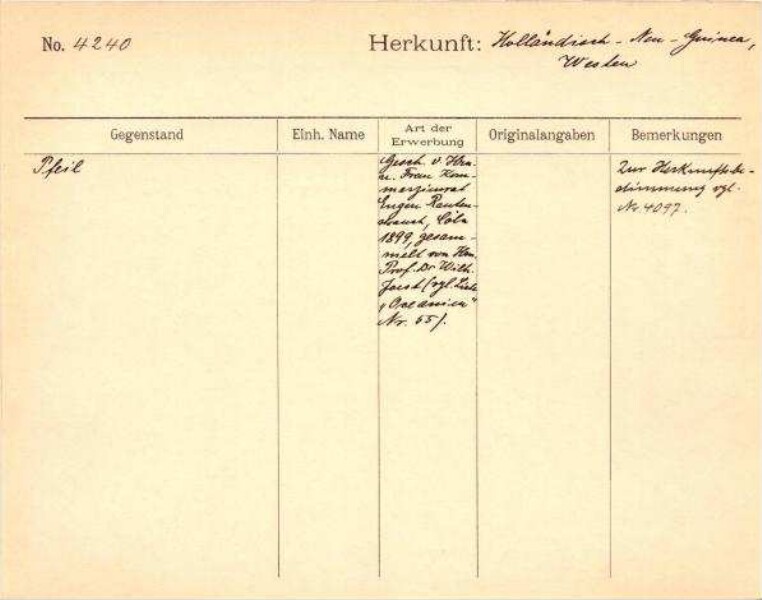 No. 4240 Herkunft: Holländisch-Neu-Guinea,
Westen
Gegenstand Einh. Name Art der Erwerbung Originalangaben Bemerkungen
Pfeil
Gesch. v. Hrn.
u. Frau Kom-
merzienrat
Eugen Rauten-
strauch, Cöln
1899, gesam-
melt von Hrn.
Prof. Dr. Wilh.
Joest (vgl. Liste
„Oceanien"
Nr. 55).
Zur Herkunftsbe-
stimmung vgl.
Nr. 4097.